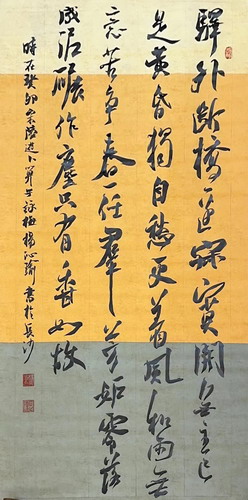 驛外斷橋邊寂寞開無主已
是黄昏獨自愁更着風和雨無
意苦争春一任羣芳妬零落
成泥碾作塵只有香如故
時在癸卯宋陸游卜算子詠梅楊沁瑜書於長沙